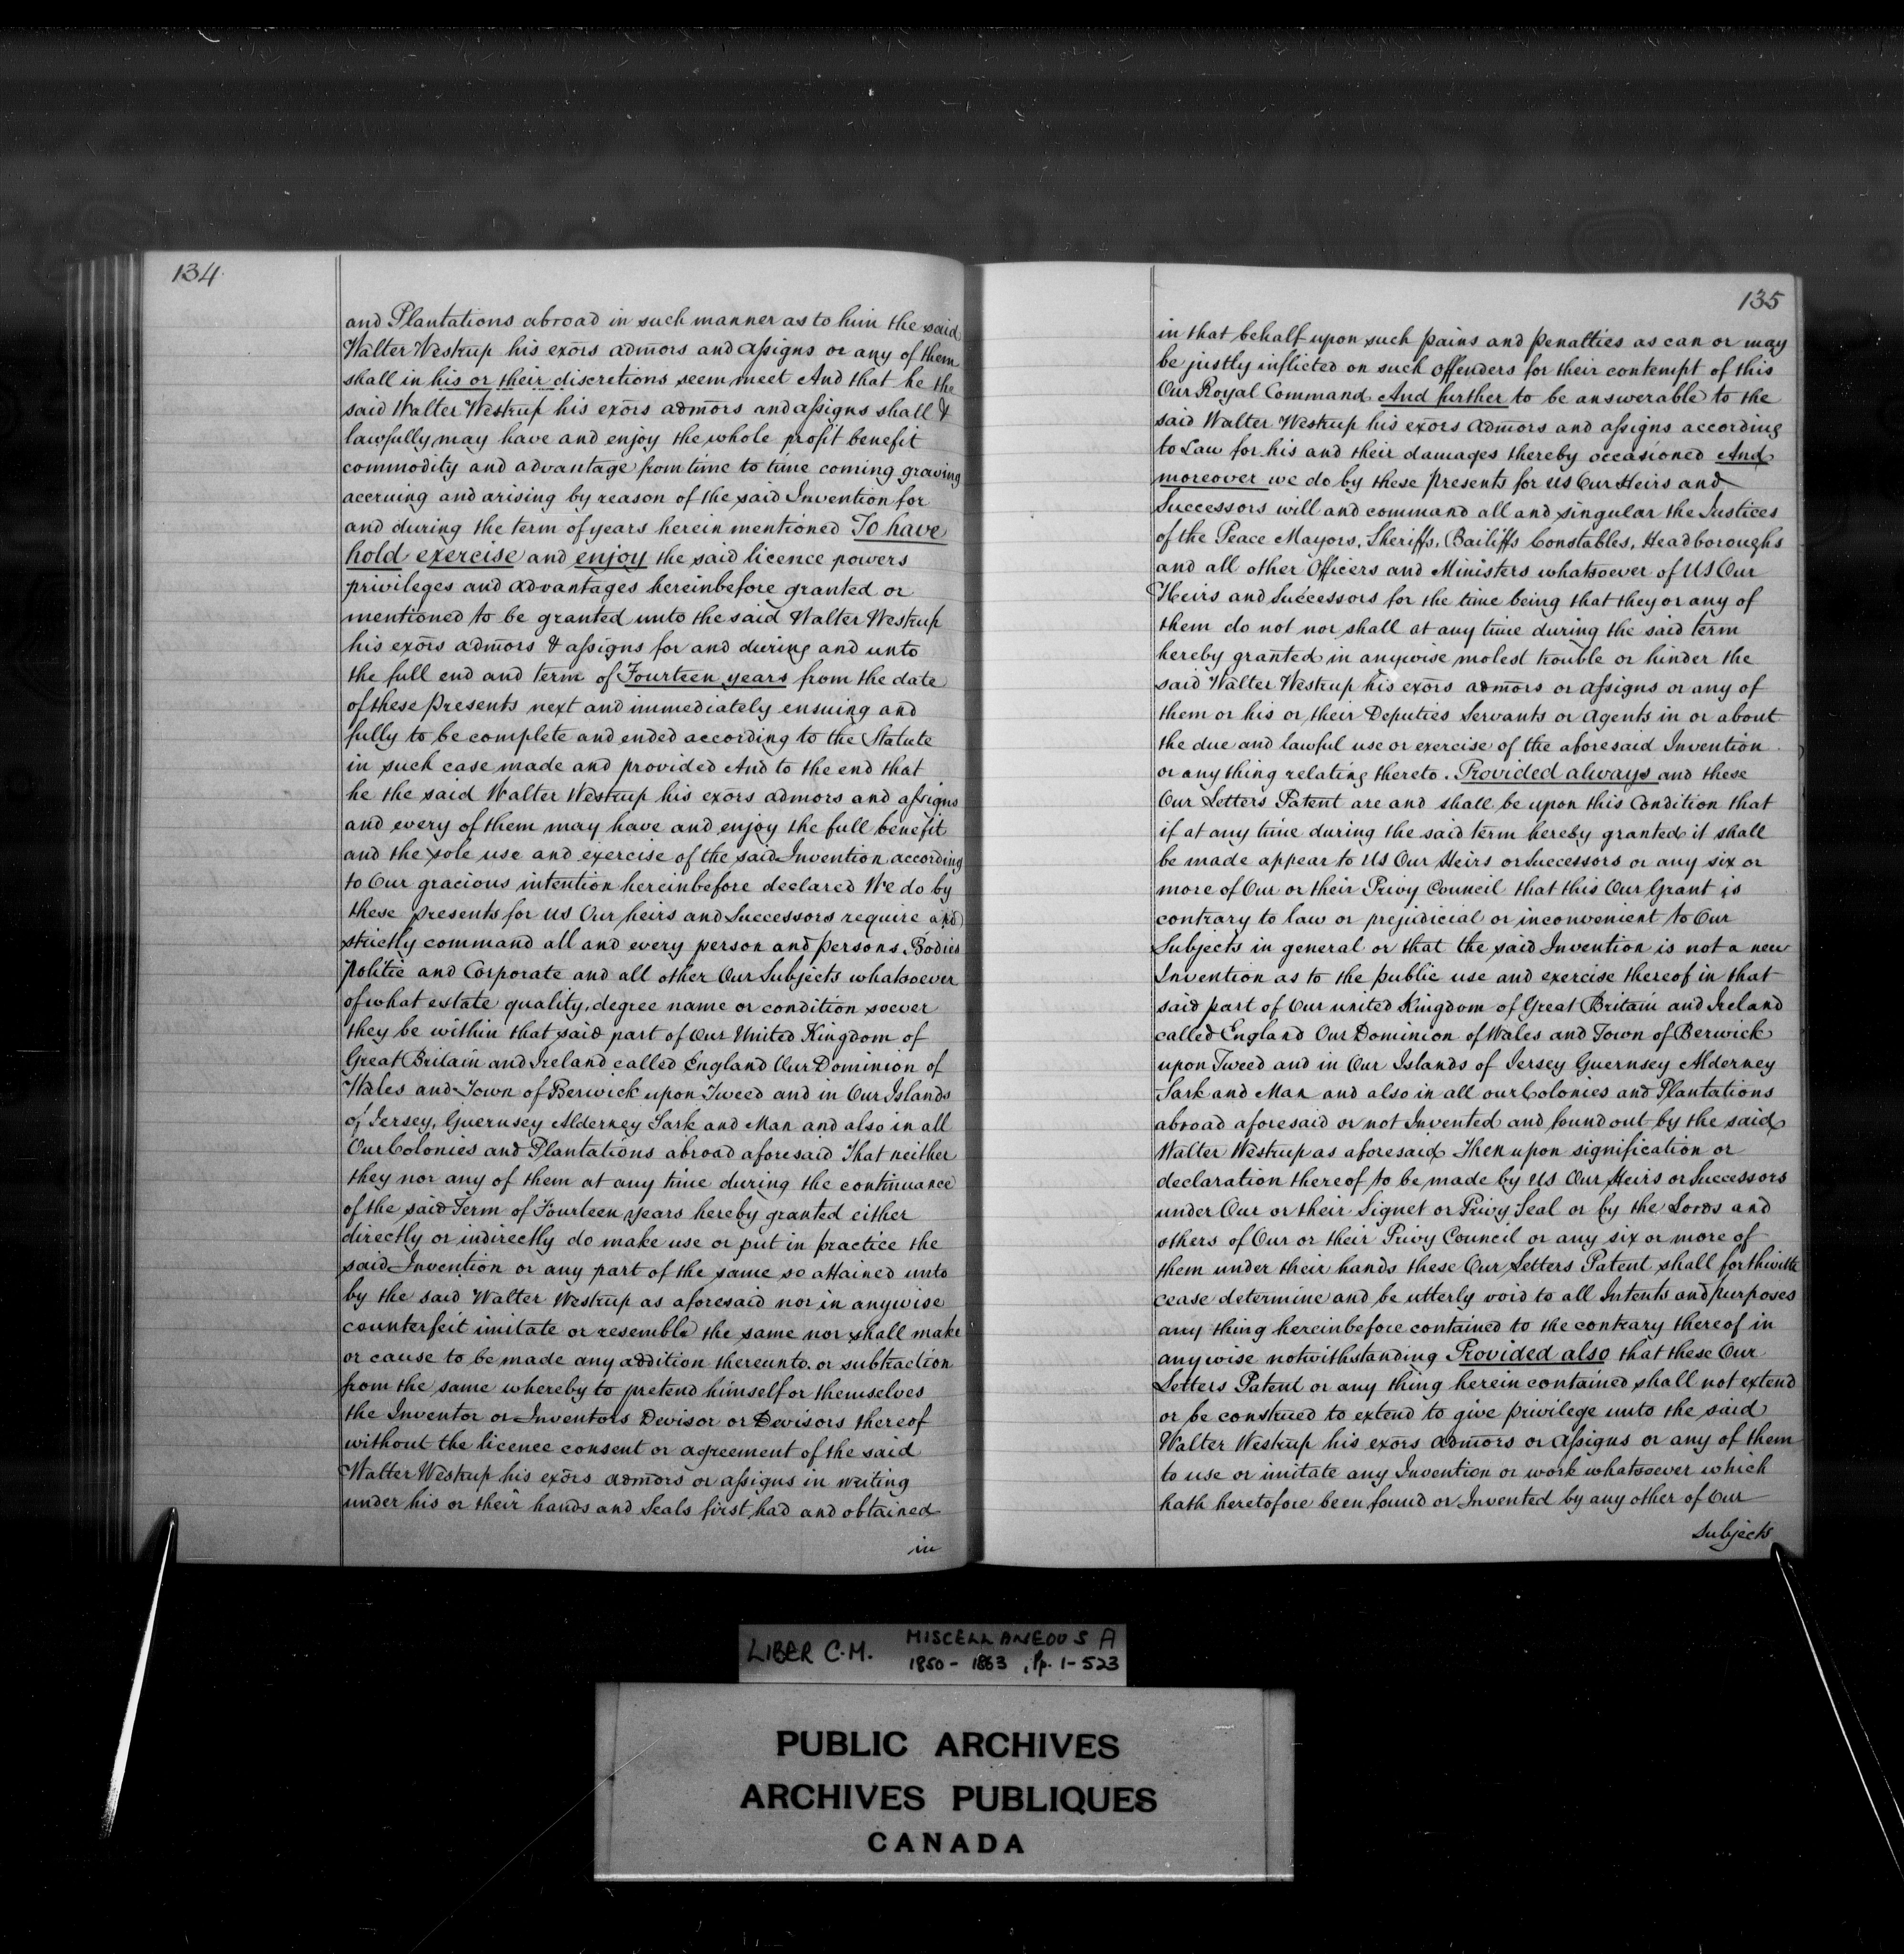 134
and Plantations abroad in such manner as to him the said
Walter Westrup his exōrs admōrs and assigns or any of them
shall in his or their discretions seem meet And that he the
said Walter Westrup his exōrs admōrs and assigns shall &
lawfully may have and enjoy the whole profit benefit
commodity and advantage from time to time coming growing
accruing and arising by reason of the said Invention for
and during the term of years herein mentioned To have
hold exercise and enjoy the said licence powers
privileges and advantages hereinbefore granted or
mentioned to be granted unto the said Walter Westrup
his exōrs admōrs & assigns for and during and unto
the full end and term of Fourteen years from the date
of these presents next and immediately ensuing and
fully to be complete and ended according to the Statute
in such case made and provided And to the end that
he the said Walter Westrup his exōrs admōrs and assigns
and every of them may have and enjoy the full benefit
and the sole use and exercise of the said Invention according
to Our gracious intention hereinbefore declared We do by
these presents for us Our heirs and Successors require and
strictly command all and every person and persons, Bodies
politic and Corporate and all other Our Subjects whatsoever
of what estate quality, degree name or condition soever
they be within that said part of Our United Kingdom of
Great Britain and Ireland called England Our Dominion of
Wales and Town of Berwick upon Tweed and in Our Islands
of Jersey, Guernsey Alderney Sark and Man and also in all
Our Colonies and Plantations abroad aforesaid That neither
they nor any of them at any time during the continuance
of the said Term of Fourteen years hereby granted either
directly or indirectly do make use or put in practice the
said Invention or any part of the same so attained unto
by the said Walter Westrup as aforesaid nor in anywise
counterfeit imitate or resemble the same nor shall make
or cause to be made any addition thereunto or subtraction
from the same whereby to pretend himself or themselves
the Inventor or Inventors Devisor or Devisors thereof
without the licence consent or agreement of the said
Walter Westrup his exōrs admōrs or assigns in writing
under his or their hands and Seals first had and obtained
in
135
in that behalf upon such pains and penalties as can or may
be justly inflicted on such offenders for their contempt of this
Our Royal Command And further to be answerable to the
said Walter Westrup his exors admōrs and assigns according
to Law for his and their damages thereby occasioned And
moreover we do by these presents for us Our Heirs and
Successors will and command all and singular the Justices
of the Peace Mayors, Sheriffs, Bailiffs Constables, Headboroughs
and all other Officers and Ministers whatsoever of US Our
Heirs and Successors for the time being that they or any of
them do not nor shall at any time during the said term
hereby granted in anywise molest trouble or hinder the
said Walter Westrup his exōrs admōrs or assigns or any of
them or his or their Deputies Servants or Agents in or about
the due and lawful use or exercise of the aforesaid Invention
or any thing relating thereto. Provided always and these
Our Letters Patent are and shall be upon this Condition that
if at any time during the said term hereby granted it shall
be made appear to US Our Heirs or Successors or any six or
more of Our or their Privy Council that this Our Grant is
contrary to law or prejudicial or inconvenient to Our
Subjects in general or that the said Invention is not a new
Invention as to the public use and exercise thereof in that
said part of Our united Kingdom of Great Britain and Ireland
called England Our Dominion of Wales and Town of Berwick
upon Tweed and in Our Islands of Jersey Guernsey Alderney
Sark and Man and also in all our Colonies and Plantations
abroad aforesaid or not Invented and found out by the said
Walter Westrup as aforesaid Then upon signification or
declaration thereof to be made by US Our Heirs or Successors
under Our or their Signet or Privy Seal or by the Lords and
others of Our or their Privy Council or any six or more of
them under their hands these Our Letters Patent shall forthwith
cease determine and be utterly void to all Intents and purposes
any thing hereinbefore contained to the contrary thereof in
anywise notwithstanding Provided also that these Our
Letters Patent or any thing herein contained shall not extend
or be construed to extend to give privilege unto the said
Walter Westrup his exōrs admōrs or assigns or any of them
to use or imitate any Invention or work whatsoever which
hath heretofore been found or Invented by any other of Our
Subjects
LIBER C.M. MISCELLANEOUS A
1850 - 1863, Pp. 1-523
PUBLIC ARCHIVES
ARCHIVES PUBLIQUES
CANADA